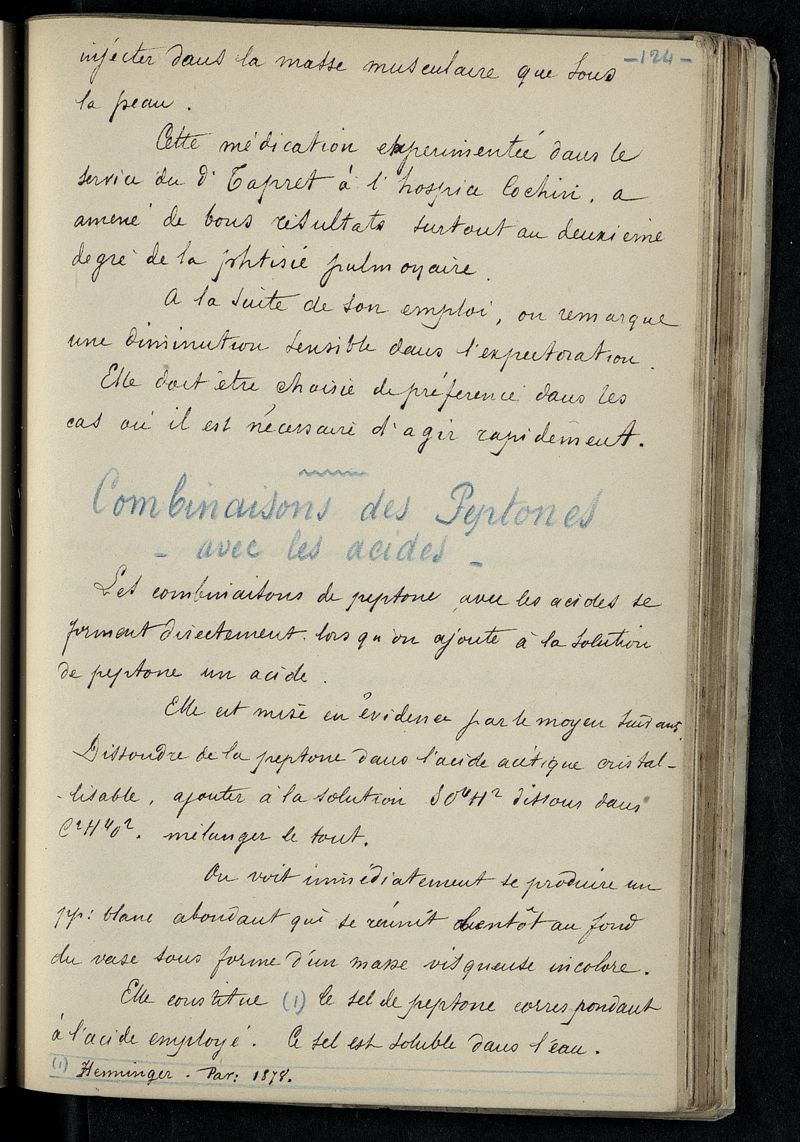 -124-
injecter dans la masse musculaire que sous
la peau.
Cette médication expérimentée dans le
service du dr Tapret à l'hospice Cochin, a
amené de bons résultats surtout au deuxième
degré de la phtisie pulmonaire.
A la suite de son emploi, on remarque
une diminution sensible dans l'expectoration.
Elle doit être choisie de préférence dans les
cas où il est nécessaire d'agir rapidement.
Combinaisons des Peptones
- avec les acides -
Les combinaisons de peptone avec les acides se
forment directement lorsqu'on ajoute à la solution
de peptone un acide.
Elle est mise en évidence par le moyen suivant,
Dissoudre de la peptone dans l'acide acétique cristal-
-lisable, ajouter à la solution SO⁴H² dissous dans
C²H⁴O². mélanger le tout.
On voit immédiatement se produire un
pp: blanc abondant qui se réunit bientôt au fond
du vase sous forme d'un masse visqueuse incolore.
Elle constitue (1) le sel de peptone correspondant
à l'acide employé. Ce sel est soluble dans l'eau.
(1) Henninger - Par: 1878.